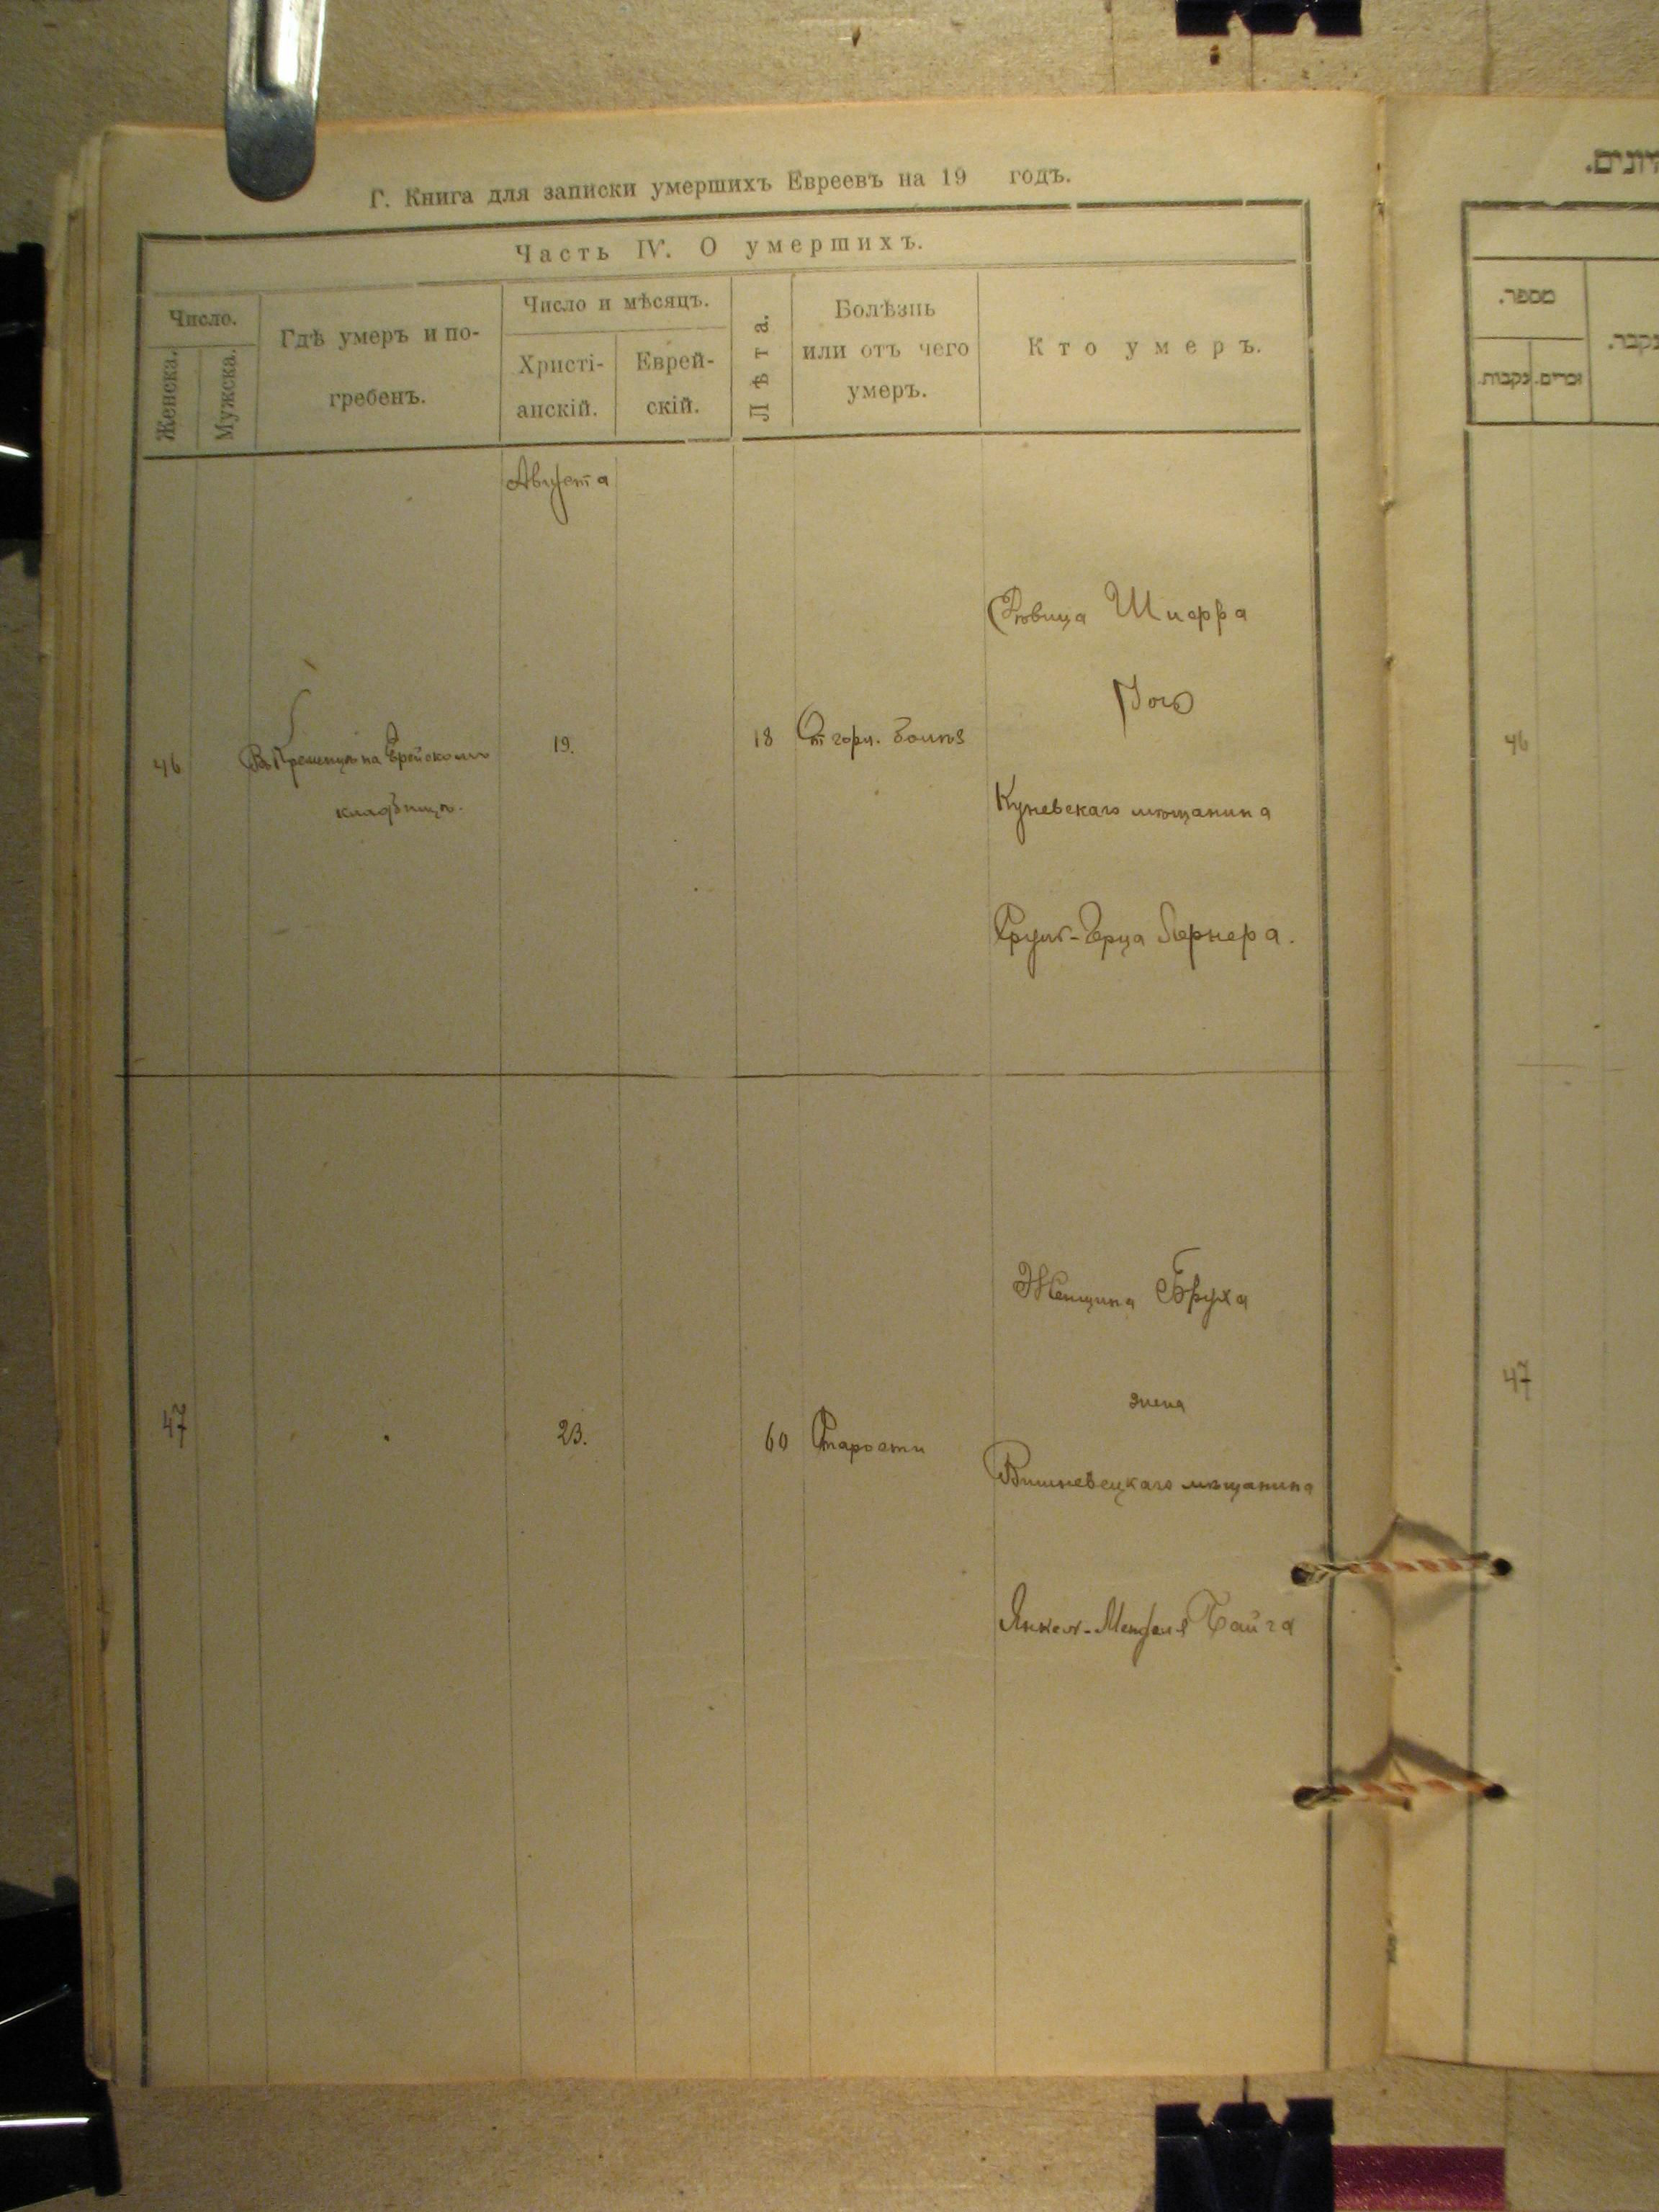 Г. Книга для записки умершихъ Евреевъ на 19 годъ.
Часть IV. О умершихъ.
Число.
Женска.
Мужска.
Гдѣ умеръ и по-
гребенъ.
Число и мѣсяцъ.
Христі-
анскій.
Еврей-
скій.
Лѣта.
Болѣзнь
или отъ чего
умеръ.
Кто умеръ.
Августа
46
Въ Кременцѣ на Еврейскомъ
кладбищѣ.
19.
18
От горл. болѣз
Дѣвица Шифра
дочь
Куневскаго мѣщанина
Сруль-Герца Лернера.
47
23.
60
Старости
Женщина Бруха
жена
Вишневецкаго мѣщанина
Янкель-Менделя
מספר.
נקבות.
זכרים.
46
47